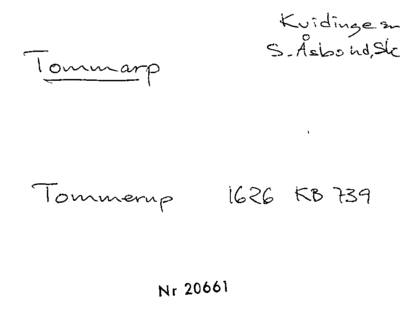 Kvidinge sn
Tommarp
S. Åsbo hd, Sk
Tommerup 1626 KB 739
Nr 20661